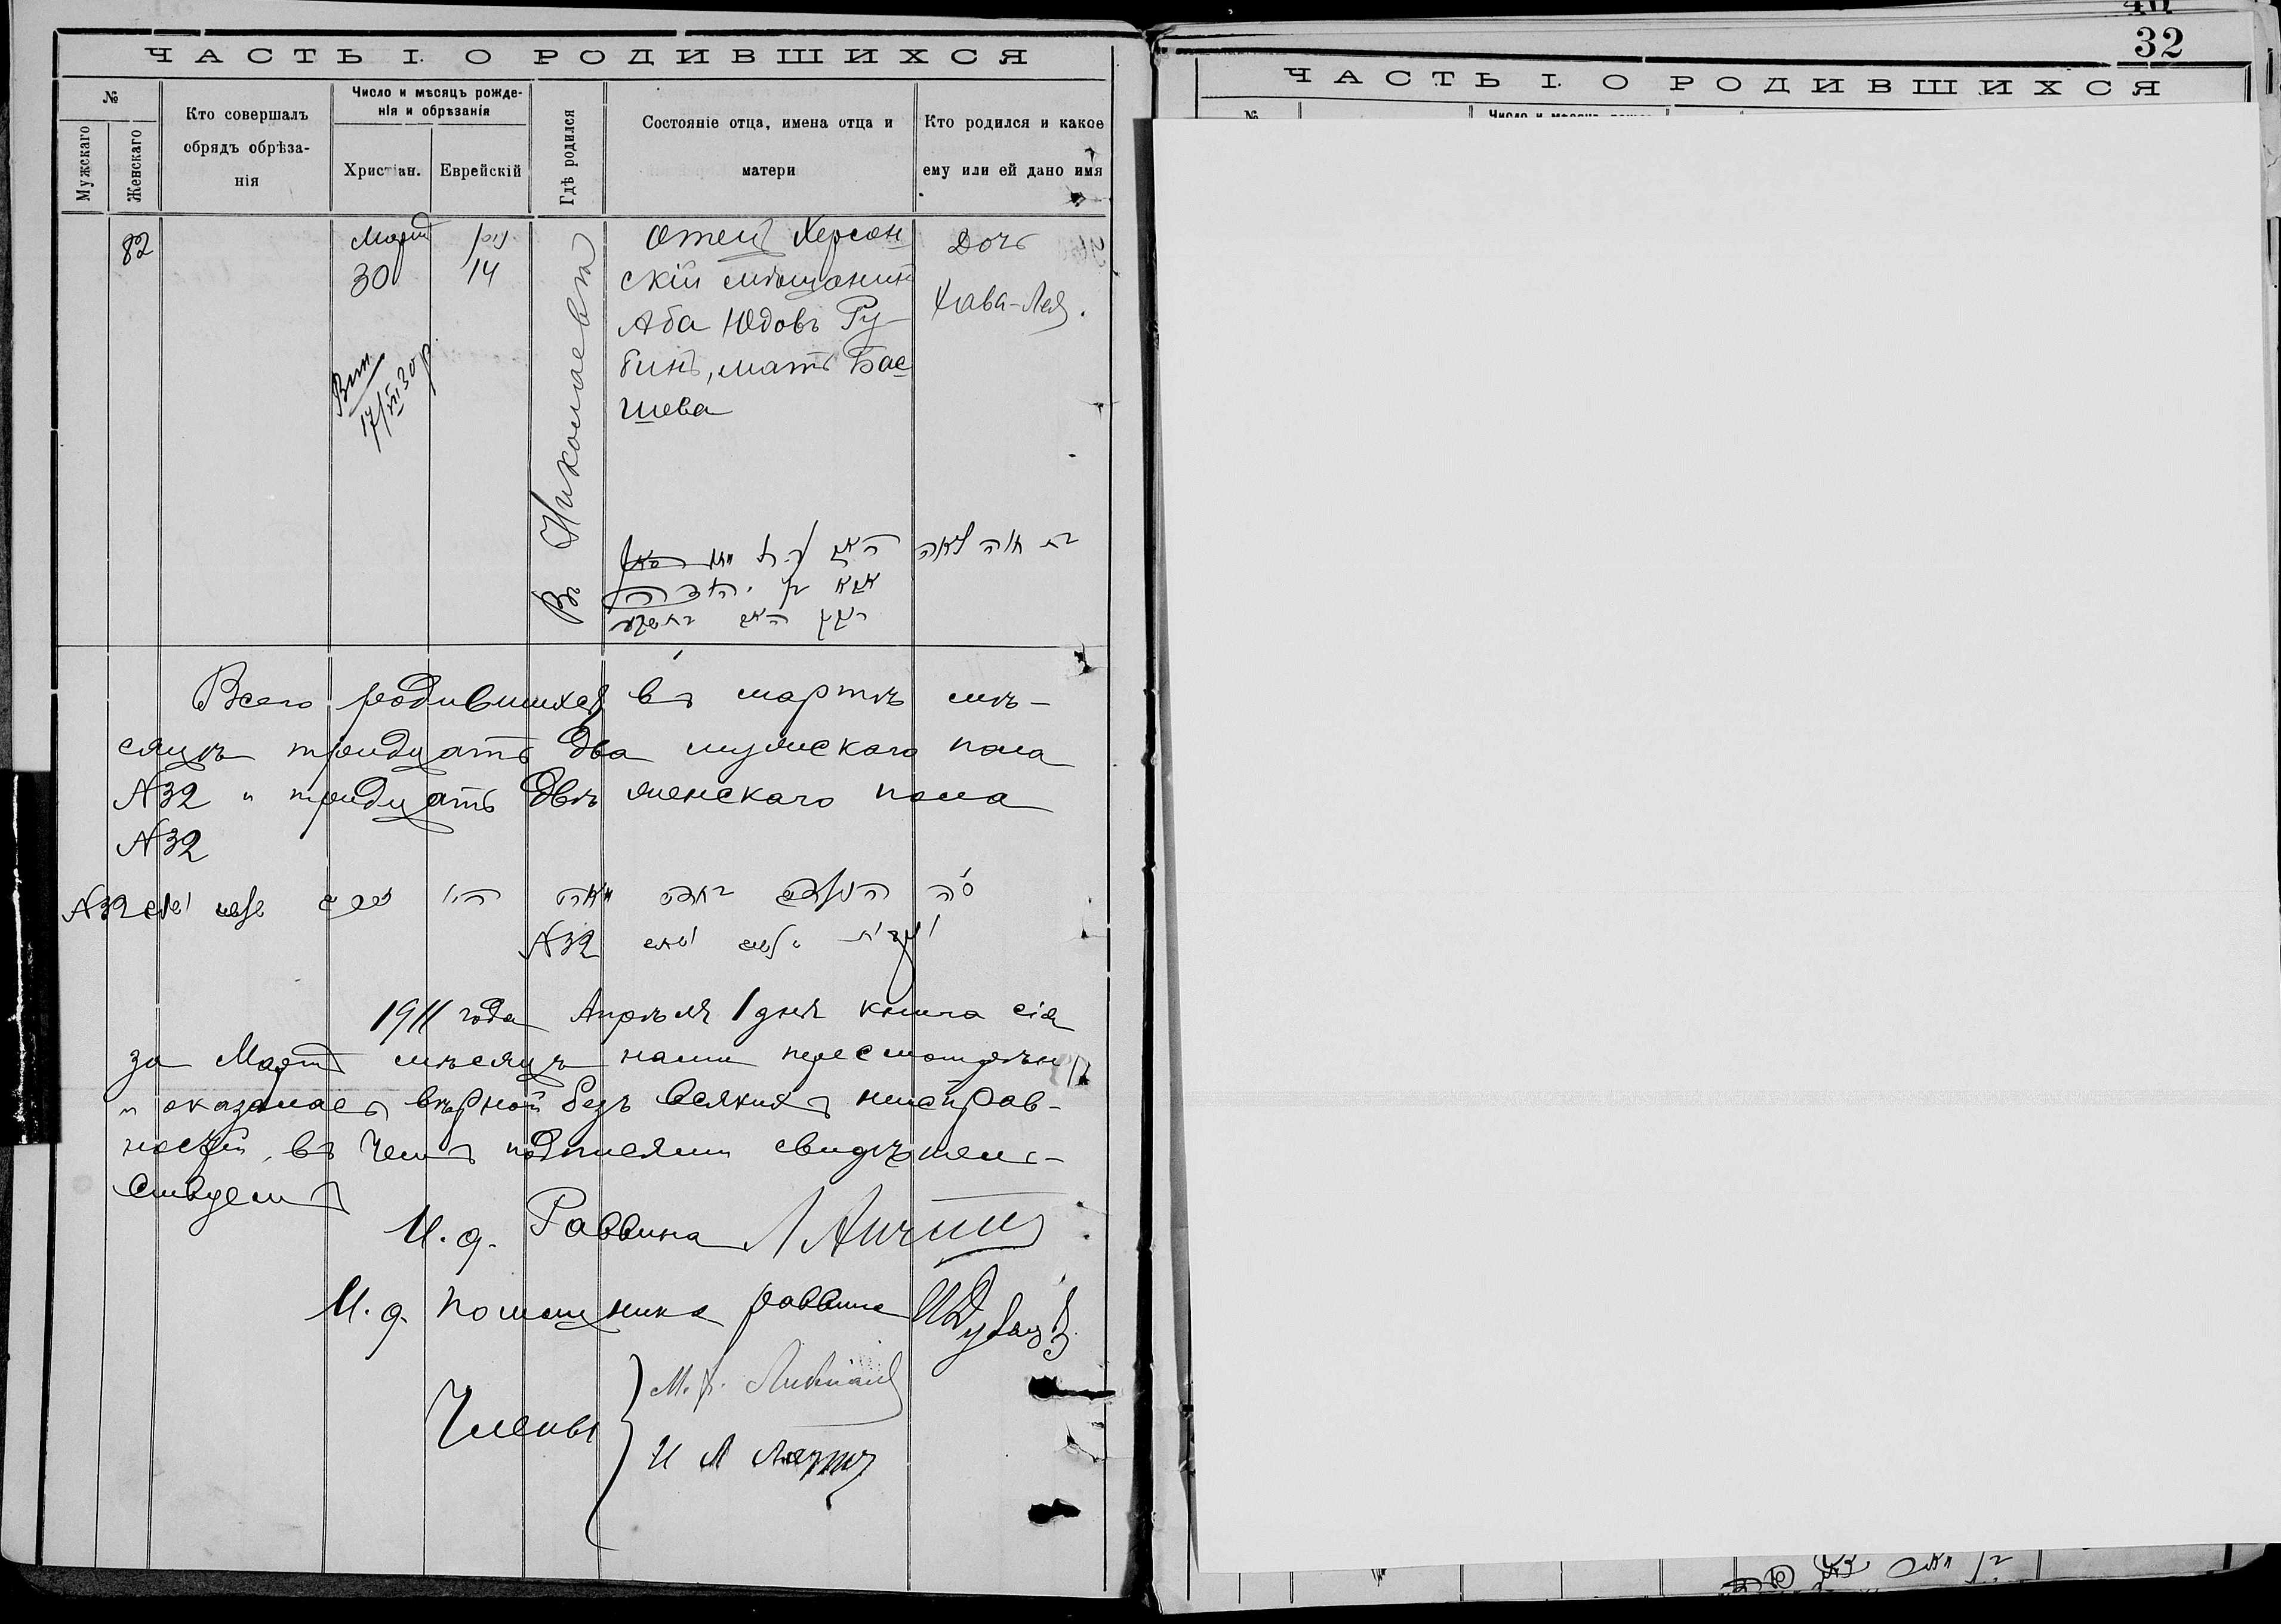 ЧАСТЬ I. О РОДИВШИХСЯ
№
Мужскаго
Женскаго
Кто совершалъ
обрядъ обрѣза-
нія
Число и мѣсяцъ рожде-
нія и обрѣзанія
Христіан.
Еврейскій
Гдѣ родился
Состояніе отца, имена отца и
матери
Кто родился и какое
ему или ей дано имя
82
Мартъ
30
ניסן
14
Вып
17/III 30 р.
Въ Николаевѣ
Отецъ Херсон
скій мѣщанинъ
Аба Юдовъ Ру-
бинъ, мать Бас
шева
Дочь
Хава-Лея.
בת חוה לאה
אבא בן יהודה
Всего родившихся въ мартѣ мѣ-
сяцѣ тридцать два мужскаго пола
№32 и тридцать двѣ женскаго пола
№32
№32
№32
1911 года Апрѣля 1 дня книга сія
за Мартъ мѣсяцъ нами пересмотрѣна
и оказалась вѣрной безъ всякихъ неисправ-
ностей, въ чемъ подписями свидѣтель-
ствуемъ
И. д. Раввина
И. д. помощника раввина
Члены
32
ЧАСТЬ I. О РОДИВШИХСЯ
№